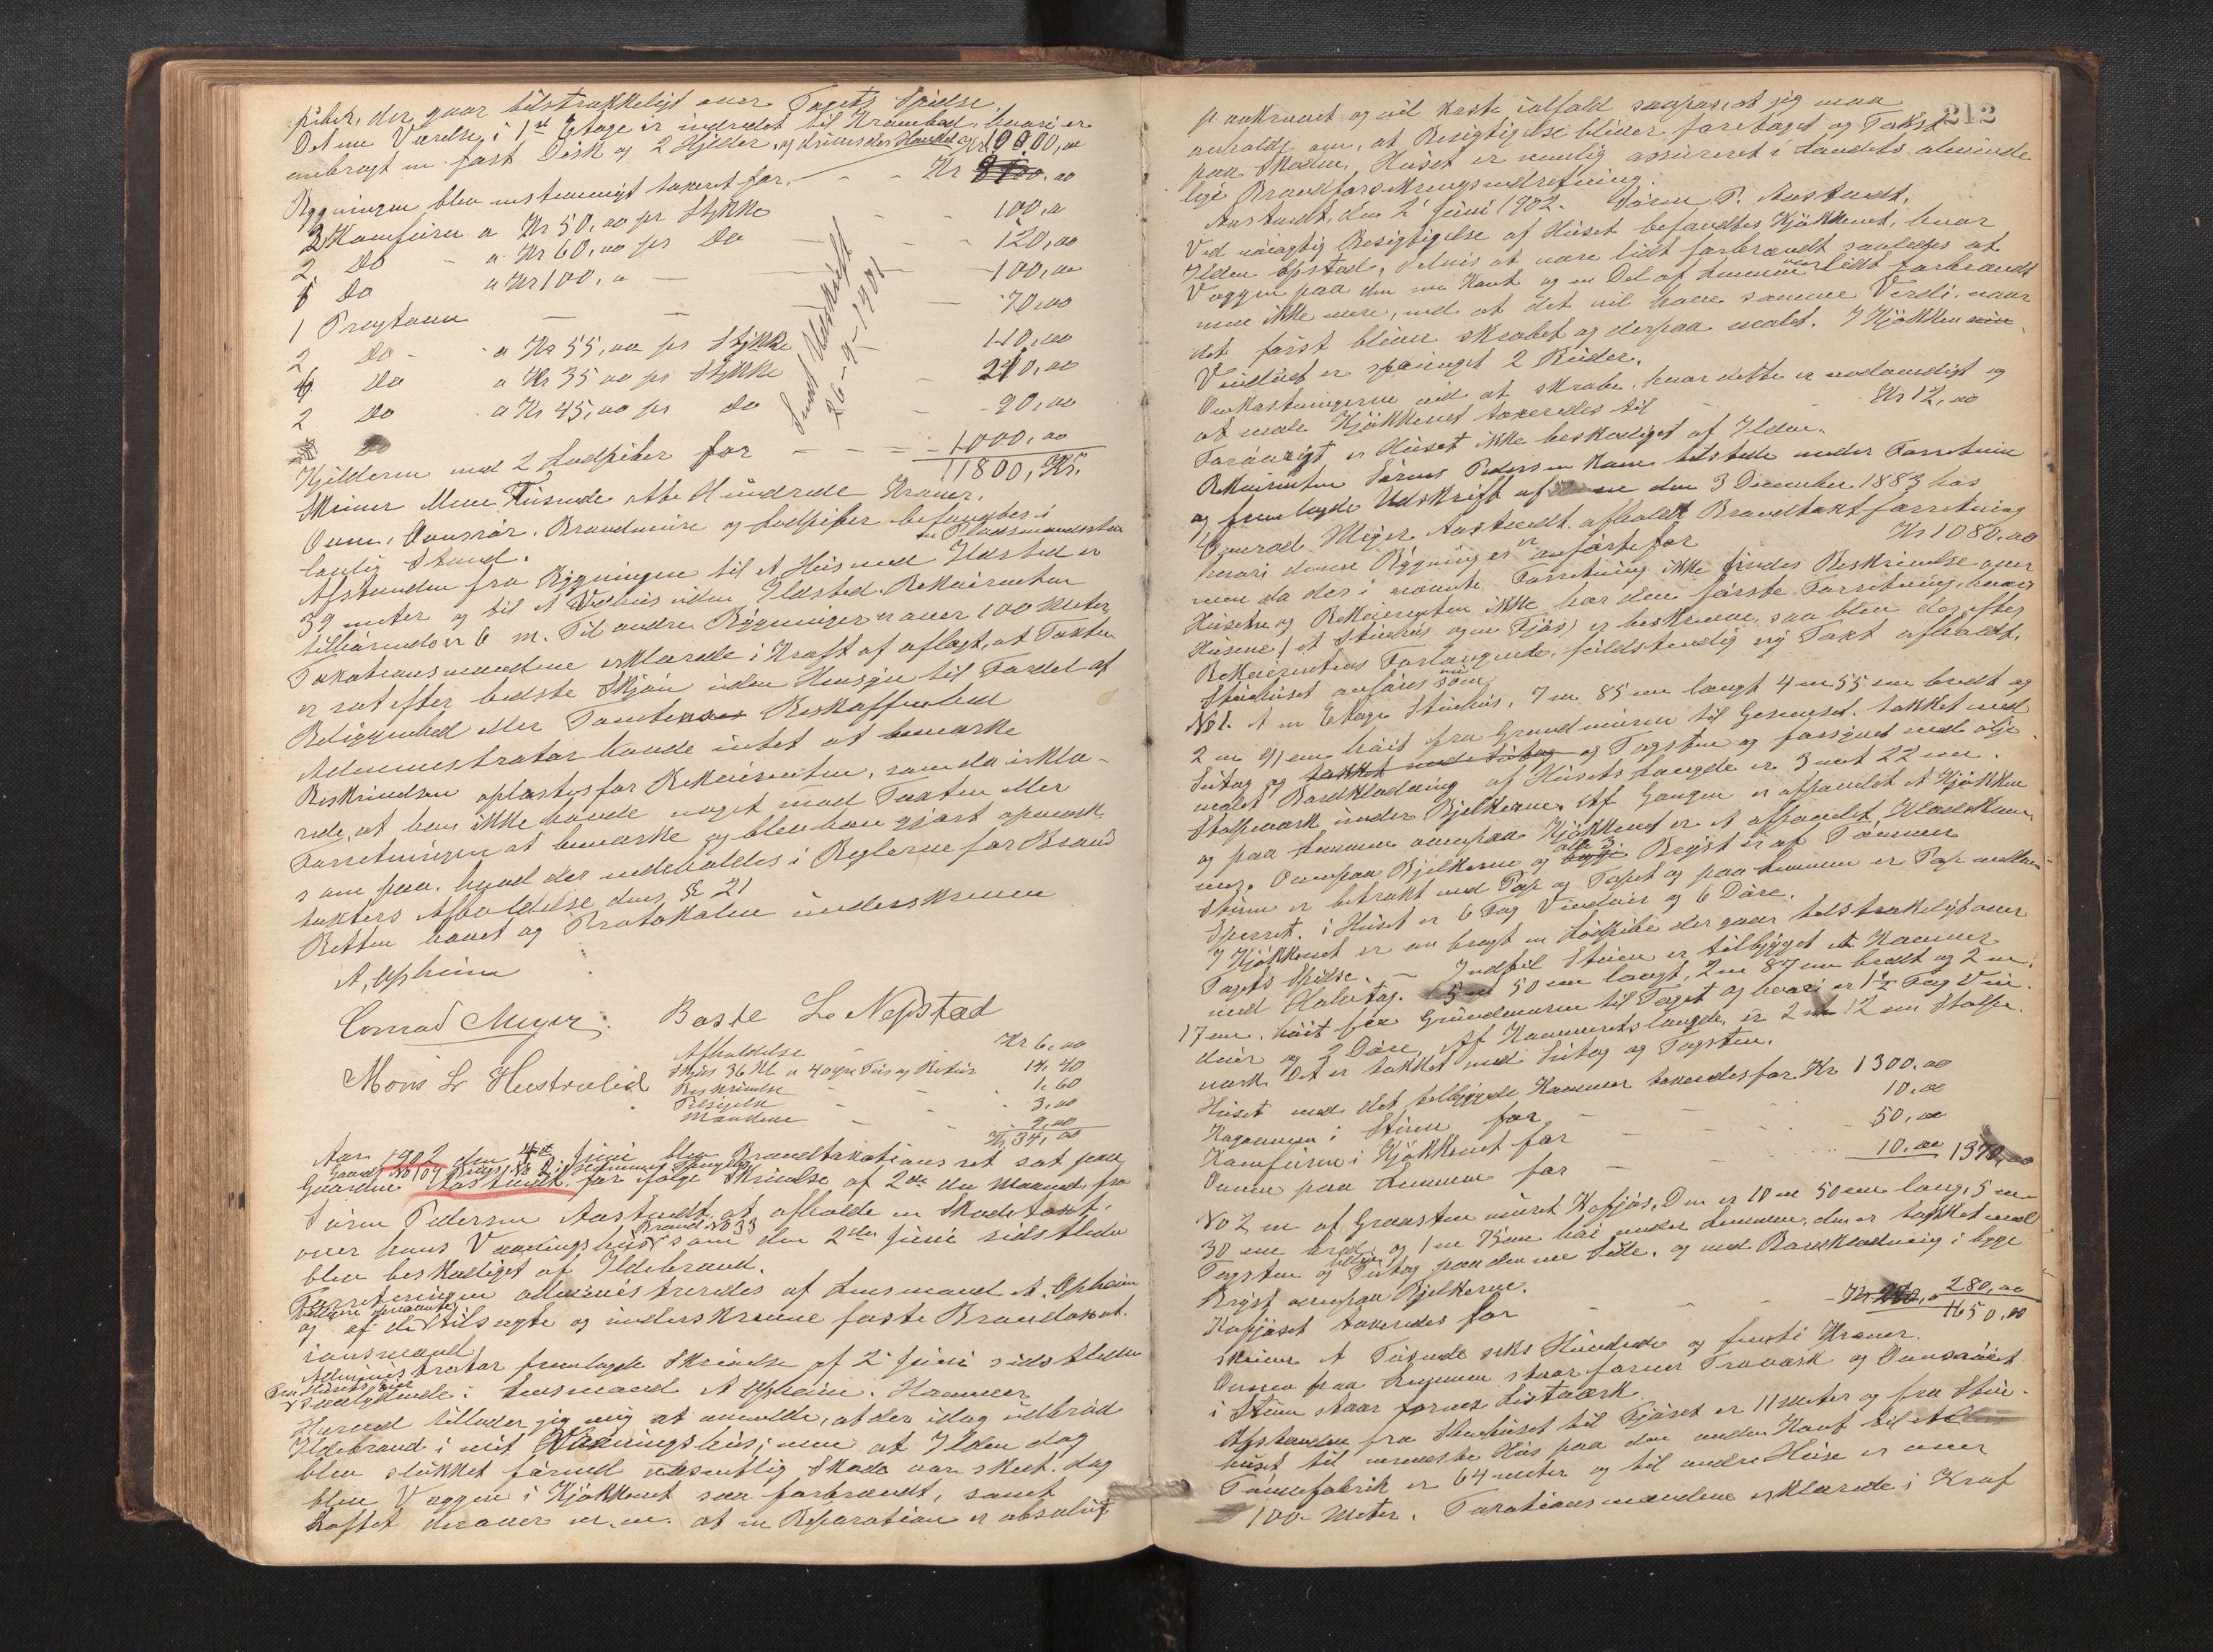 piber, der gaar tilstrækkeligt over Tagets Spidse.
Det ene Værelse i 1st Etage er indredet til Krambod, hvori er
anbragt en fast Disk og 2 Hylder, og
Bygningen blev enstemmigt taxeret for Kr
2 Komfurer a Kr 50,00 pr Stykke 100,00
2 Do a Kr 60,00 pr Do 120,00
1 Do a Kr 100,00 100,00
1 70,00
2 Do a Kr 55,00 pr Stykke 110,00
6 Do a Kr 35,00 pr Stykke 210,00
2 Do a Kr 45,00 pr Do 90,00
Sendt Udskrift
26-9-1901
Kjelderen med 2 Lodpiber for 1000,00
11800, Kr.
Skriver Elleve Tusinde otte Hundrede Kroner.
Ovne, Ovnsrør, Brandmure og Lodpiber befandtes i
lovlig Stand.
Afstanden fra Bygningen til et Hus med Ildsted
39 meter og til et Vedhus uden Ildsted Rekvirenten
tilhørende er 6 m. Til andre Bygninger er over 100 Meter,
Taxationsmændene erklærede i Kraft af aflagt, at Taxten
er sat efter bedste Skjøn uden Hensyn til Fordel af
Beliggenhed eller Tomtens Beskaffenhed
Administrator havde intet at bemærke
Beskrivelsen oplæstes for Rekvirenten, som da erklæ-
rede, at han ikke havde noget mod Taxten eller
Forretningen at bemærke og blev han gjort opmærk-
som paa, hvad der indeholdes i Reglerne for Brand
taxters Afholdelse dens § 21
Retten hævet og Protokolen underskreven
A. Opheim
Conrad Meyer. Baste L. Nepstad
Mons L. Hustvedt
Afholdelse Kr 6,00
Skyds 36 Kl a 40 øre Tur og Retur 14,40
Beskrivelse 1,60
Tilsigelse 3,00
Mændene 9,00
Kr. 34,00
Aar 1902 den 4de Juni blev Brandtaxationsret sat paa
Gaarden Aastvedt ifør følge Skrivelse af 2den ds Maaned fra
Søren Pedersen Aastvedt at afholde en Skadetaxt
Brand No 33
over hans Vaaningshus som den 2den Juni sidstleden
blev beskadiget af Ildebrand.
Forretningen administreredes af Lensmand A. Opheim
og af de tilsagte og underskrevne faste Brandtaxat-
ionsmænd
Administrator fremlagde Skrivelse af 2 Juni sidstleden
saalydende: Lensmand A Opheim. Hammer
Herved tillader jeg mig at anmelde, at der idag udbrød
Ildebrand i mit Vaaningshus; men at Ilden dog
blev slukket førend væsentlig Skade var skeet. dog
blev Væggen i Kjøkkenet saa forbrændt, samt
Loftet derover m.m. at en Reparation er absolut
212
paakrævet og vil koste ialfald saapas, at jeg maa
anholde om, at Besigtigelse bliver foretaget og Takst
paa Skaden. Huset er nemlig assureret i Landets alminde
lige Brandforsikringsindretning.
Aastvedt, den 2 Juni 1902. Søren P. Aastvedt.
Ved nøiagtig Besigtigelse af Huset befandtes Kjøkkenet, hvor
Ilden opstod, delvis at være lidt forbrændt saaledes at
Væggen paa den ene Kant og en Del af Lemmen var lidt forbrændt
men ikke mere, end at det vil have samme Verdi, naar
det først bliver skrabet og derpaa malet. I Kjøkken
Vinduet er sprunget 2 Ruder.
Omkostningerne ved at skrabe, hvor dette er nødvendigt og
at male Kjøkkenet taxeredes til Kr 12,00
Forøvrigt er Huset ikke beskadiget af Ilden.
Rekvirenten Sørens Pedersen kom tilstede under Forretnin
og fremlagde Udskrift af den 3 December 1883 hos
Conrad Meyer Aastvedt afholdt Brandtaxtforretning
hvori denne Bygning er anført for Kr 1080,00
men da der i nævnte Forretning ikke findes Beskrivelse over
Husene og Rekvirenten ikke har den første Forretning, hvori
Husene (et Stuehus og en Fjøs) er beskreven, saa blev der efter
Rekvirentens Forlangende, fuldstændig ny Taxt afholdt.
Stuehuset anføres som
No 1. Et en Etages Stuehus, 7 m 85 cm langt 4 m 55 cm bredt og
2 m 91 cm høit fra Grundmuren til Gesemset, takket med
Sutag og Tagsten og forsynet med olje
malet Bordklædning af Husets Længde er 3 met 22 cm
Stolpeværk under Bjelkerne. Af Gangen er afpanelet et Kjøkken
og paa Lemmen ovenpaa Kjøkkenet er et afpanelet Klædekam
mer. Ovenpaa Bjelkerne og alle 3 Brøst er af Tømmer
Stuen er betrukket med Pap og Tapet og paa Lemmen er Pap mellem
Sperret. i Huset er 6 Fag Vinduer og 6 Døre.
I Kjøkkenet er anbragt en Lodpibe der gaar tilstrækeligt over
Tagets Spidse. — Indtil Stuen er tilbygget et Kammer
med Halvtag. 50 cm langt, 2 m 87 cm bredt og 2 m
17 cm høit fra Grundmuren til Taget og hvori er 1½ Fag Vin-
duer og 2 Døre. Af Kammerets længde er 2 m 12 cm Stolpe-
værk. Det er takket med Sutag og Tagsten.
Huset med det tilbyggede Kammer taxeredes for Kr 1300,00
Kogeovnen i Stuen for 10,00
Komfuren i Kjøkkenet for 50,00
Ovnen paa Lemmen for 10,00 1370,00
No 2 en af Graasten muret Kofjøs. Den er 10 m 50 cm lang, 5 m
30 cm bred og 1 m 75 cm høi under Lemmen, den er takket med
Tagsten og Sutag paa den ene Side, og med Bordklædning i begge
Brøst ovenpaa Bjelkerne.
Kofjøset taxeredes for Kr 280,00
1650,00
skriver Et Tusende seks Hundrede og femti Kroner.
Ovnen paa Lemmen staar for nær Træværk og Ovnsrøret
i Stuen staar for nær Listværk.
Afstanden fra Stuehuset til Fjøset er 11 Meter og fra Stue-
huset til nærmeste Hus paa den anden Kant til et
Tøndefabrik er 64 meter og til andre Huse er over
100 Meter. Taxationsmændene erklærede i Kraf